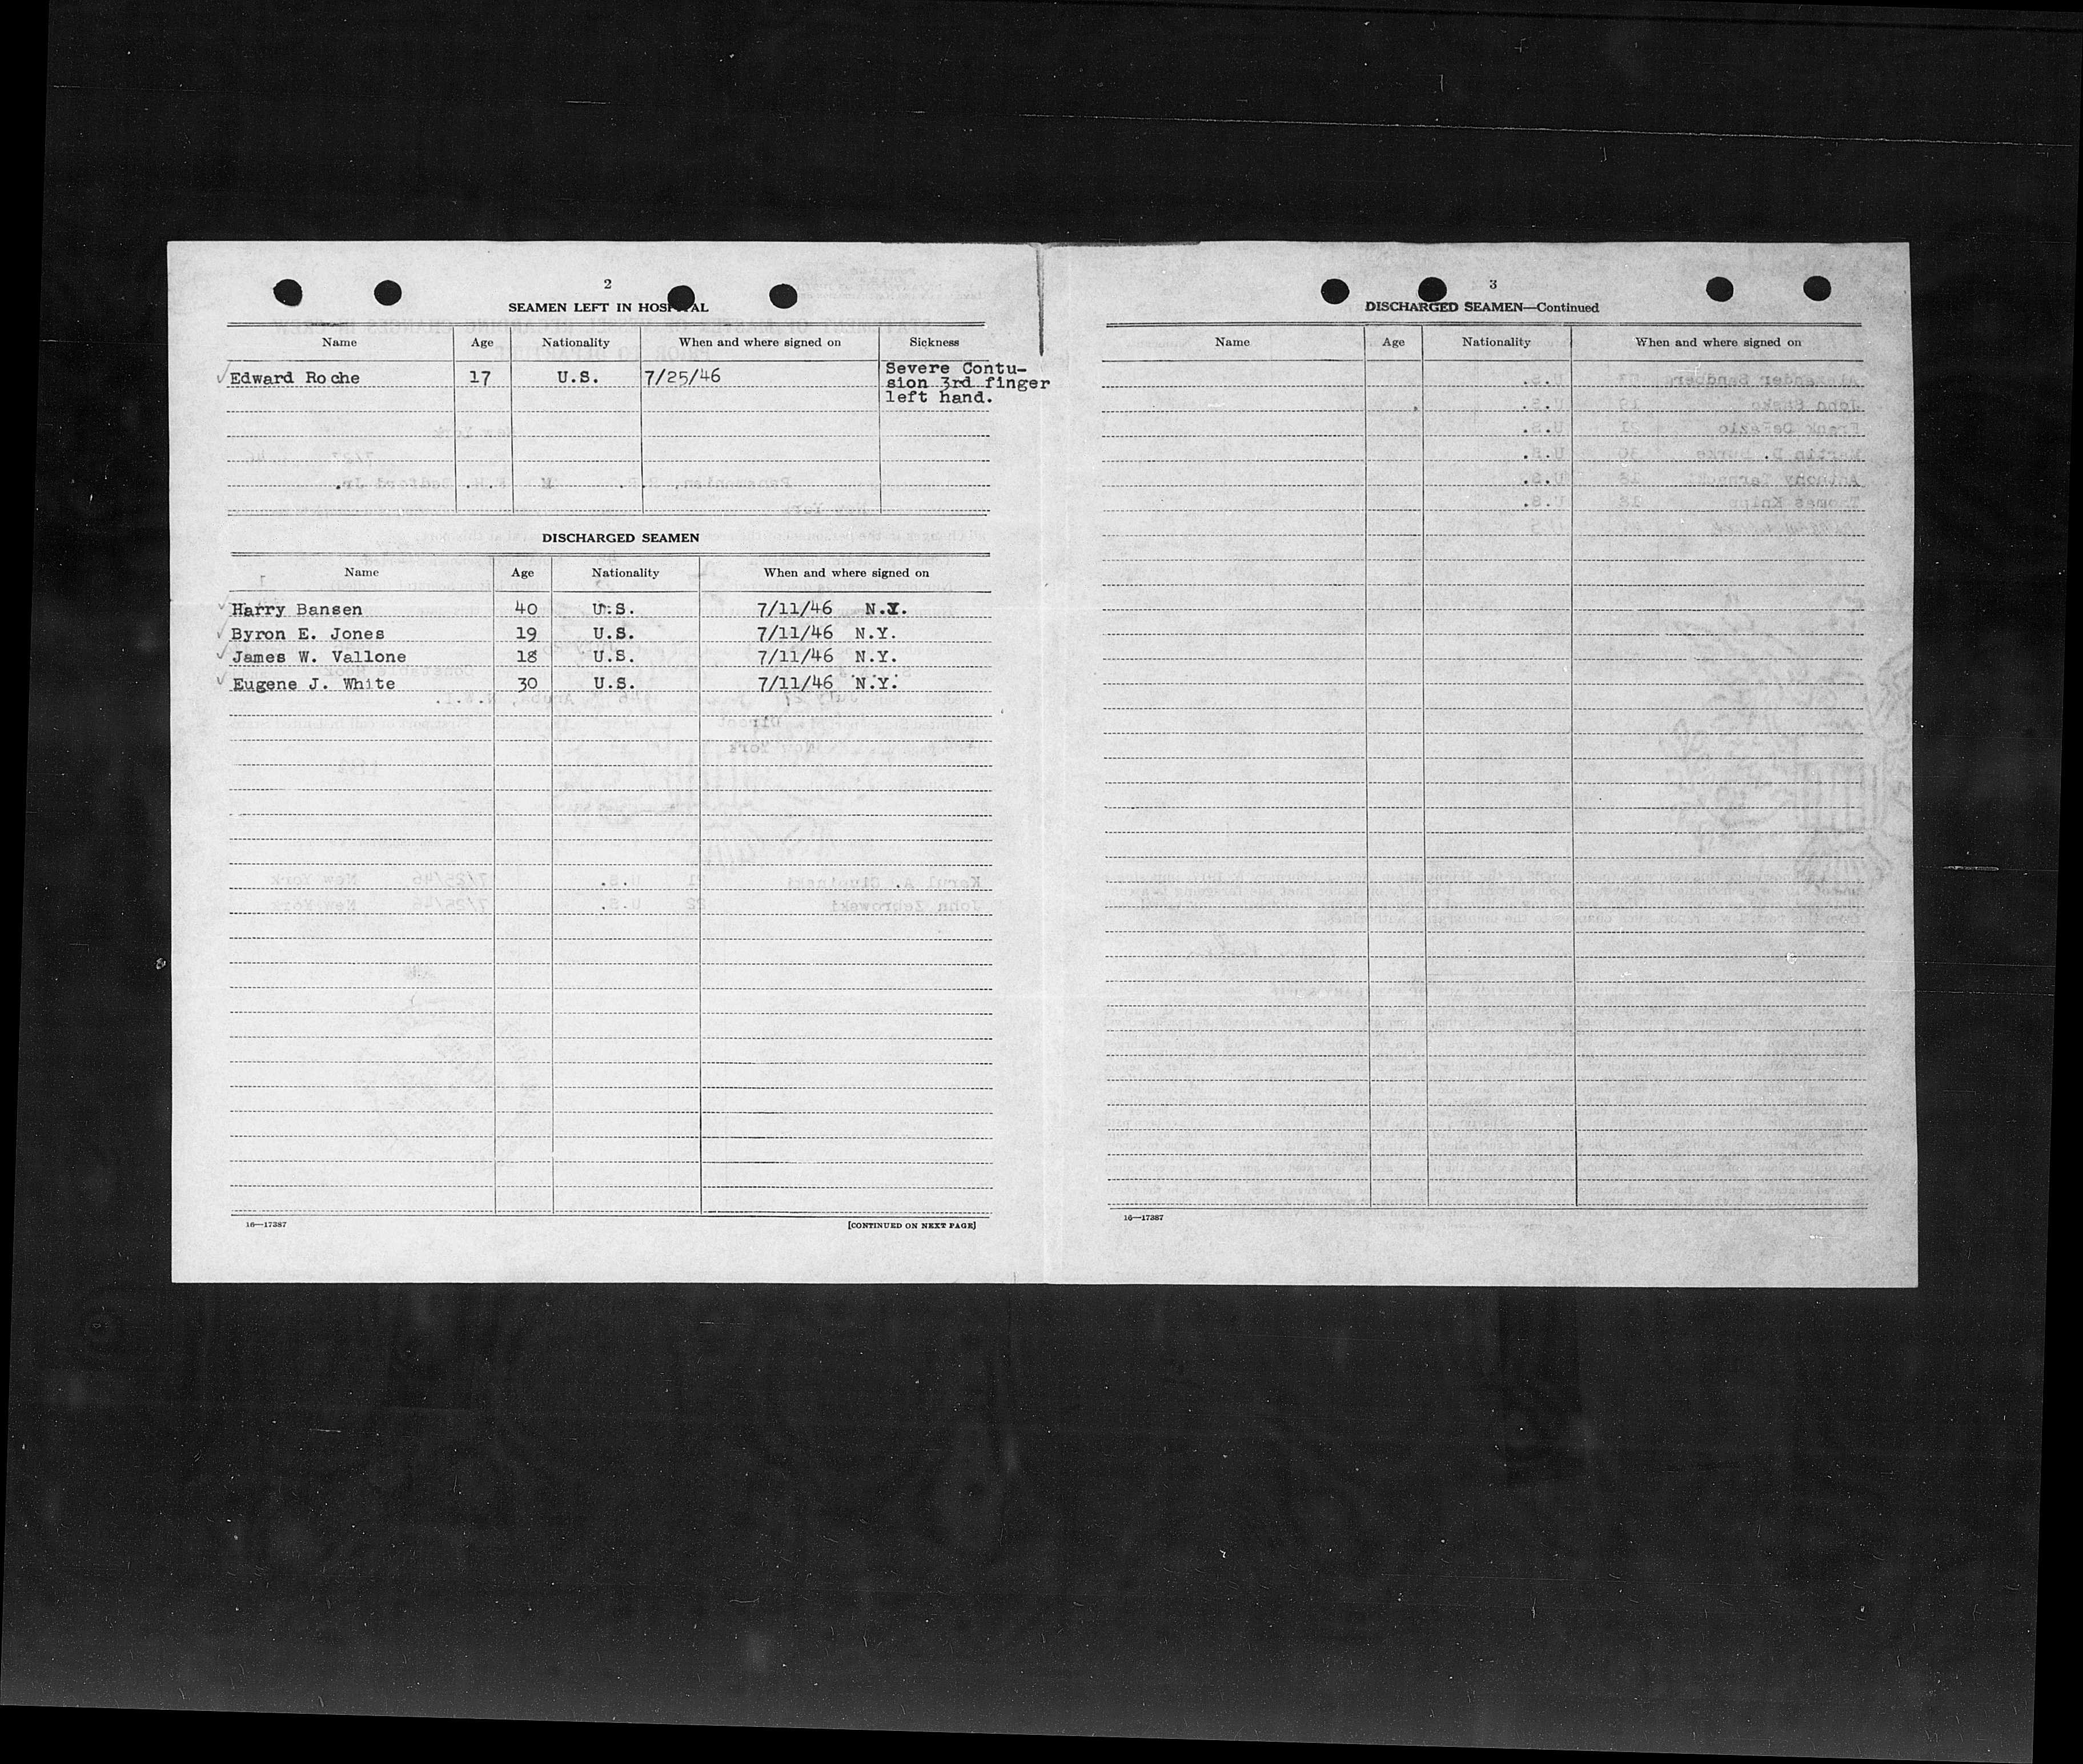 2
SEAMEN LEFT IN HOSPITAL
Name Age Nationality When and where signed on Sickness
Edward Roche 17 U.S. 7/25/46 Severe Contu-
sion 3rd finger
left hand.
DISCHARGED SEAMEN
Name Age Nationality When and where signed on
Harry Bansen 40 U.S. 7/11/46 N.Y.
Byron E. Jones 19 U.S. 7/11/46 N.Y.
James W. Vallone 18 U.S. 7/11/46 N.Y.
Eugene J. White 30 U.S. 7/11/46 N.Y.
16—17387 [CONTINUED ON NEXT PAGE]
3
DISCHARGED SEAMEN—Continued
Name Age Nationality When and where signed on
16—17387